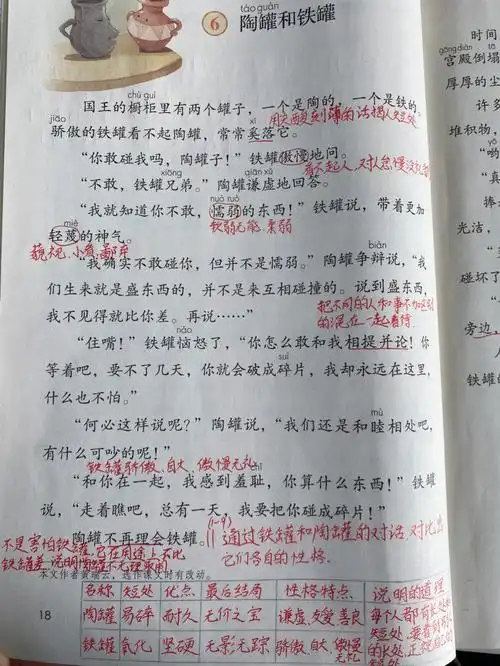 táo guàn
6 陶罐和铁罐
chú guì
国王的橱柜里有两个罐子，一个是陶的，一个是铁的。
jiāo
骄傲的铁罐看不起陶罐，常常奚落它。
xī
用尖酸刻薄的话揭人短处
“你敢碰我吗，陶罐子！”铁罐傲慢地问。
看不起人，对人怠慢没礼
xiōng
qiān xū
“不敢，铁罐兄弟。”陶罐谦虚地回答。
nuò ruò
“我就知道你不敢，懦弱的东西！”铁罐说，带着更加
miè
轻蔑的神气。
软弱无能 柔弱
藐视、小看、鄙弃
biàn
“我确实不敢碰你，但并不是懦弱。”陶罐争辩说，“我
们生来就是盛东西的，并不是来互相碰撞的。说到盛东西，
我不见得就比你差。再说……”
把不同的人和事不加区别
的混在一起看待
nǎo
“住嘴！”铁罐恼怒了，“你怎么敢和我相提并论！你
suì
等着吧，要不了几天，你就会破成碎片，我却永远在这里，
什么也不怕。”
mù
“何必这样说呢？”陶罐说，“我们还是和睦相处吧，
有什么可吵的呢！”
铁罐骄傲、自大、傲慢无礼
chǐ
“和你在一起，我感到羞耻，你算什么东西！”铁罐
说，“走着瞧吧，总有一天，我要把你碰成碎片！”
陶罐不再理会铁罐。
(1-9)
通过铁罐和陶罐的对话，对比出
它们各自的性格.
不是害怕铁罐，它在用途上不比
铁罐差，说明陶罐不无理取闹
本文作者黄瑞云，选作课文时有改动。
名称 短处 优点 最后结局 性格特点 说明的道理
陶罐 易碎 耐久 无价之宝 谦虚、友善、善良
铁罐 氧化 坚硬 无影无踪 骄傲、自大、傲慢无礼
每个都有长处和
短处，要看到别人
的长处，正视自己的
18
时间
gōng diàn tā
宫殿倒塌
厚厚的尘
许多
堆积物，
“
“真
捧起
“
光洁，
旁边，
铁罐的